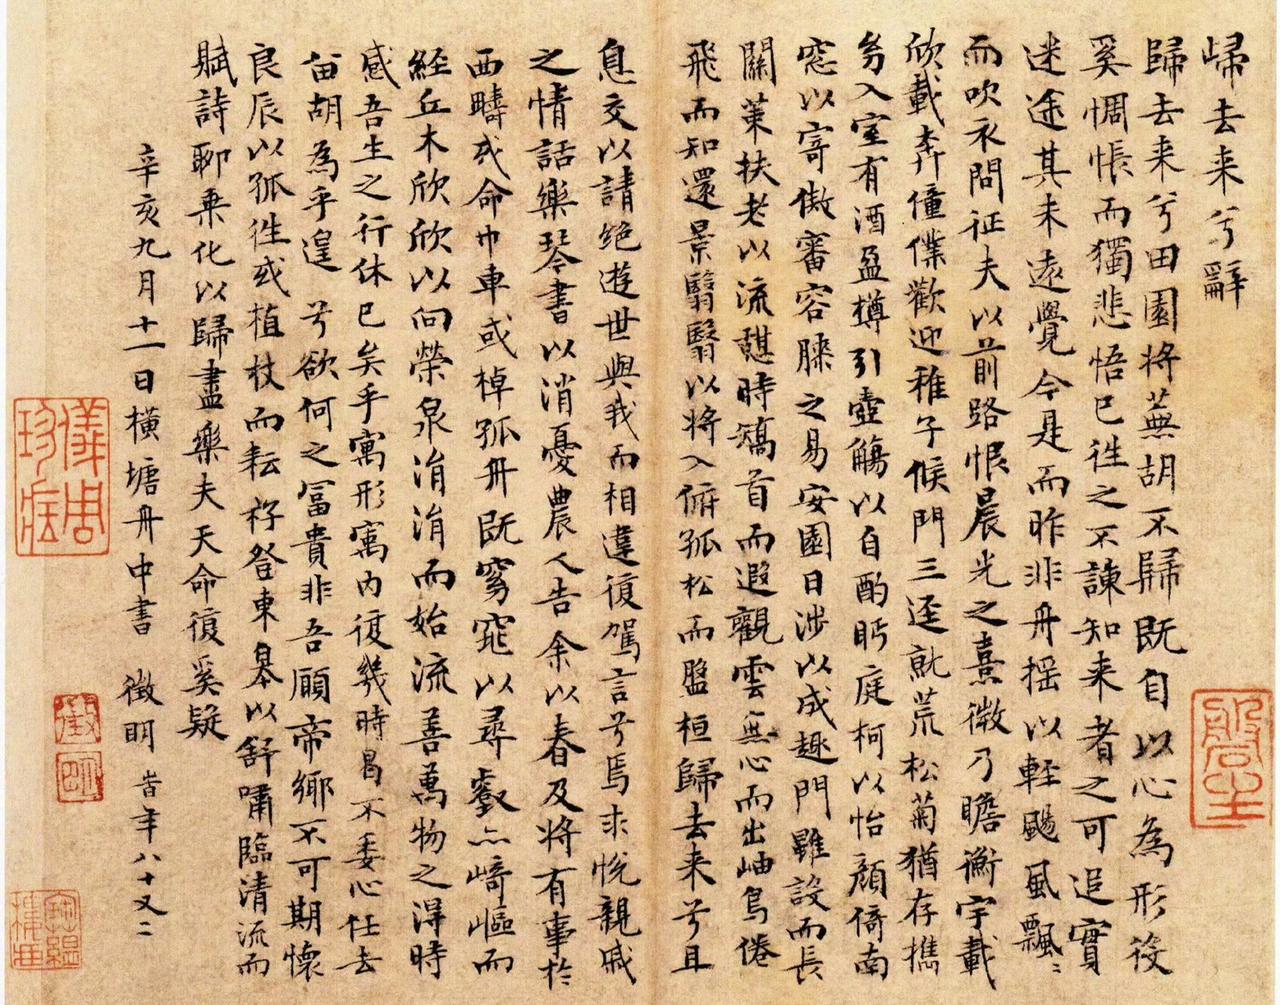 歸去来兮辭
歸去来兮田園将蕪胡不歸既自以心為形役
奚惆悵而獨悲悟已往之不諫知来者之可追實
迷途其未遠覺今是而昨非舟揺以輊颺風飄〻
而吹衣問征夫以前路恨晨光之熹微乃瞻衡宇載
欣載奔僮僕歡迎稚子候門三迳就荒松菊猶存攜
幼入室有酒盈樽引壺觴以自酌眄庭柯以怡顔倚南
窓以寄傲審容膝之易安園日涉以成趣門雖設而長
關策扶老以流憩時矯首而遐觀雲無心而出岫鳥倦
飛而知還景翳翳以将入俯孤松而盤桓歸去来兮且
息交以請絶遊世與我而相違復駕言兮焉求悦親戚
之情話樂琴書以消憂農人告余以春及将有事於
西疇或命巾車或棹孤舟既窈窕以尋壑亦崎嶇而
経丘木欣欣以向榮泉涓涓而始流善萬物之得時
感吾生之行休已矣乎寓形寓内復幾時曷不委心任去
留胡為乎遑兮欲何之冨貴非吾願帝郷不可期懷
良辰以孤往或植杖而耘耔登東皋以舒嘯臨清流而
賦詩聊乗化以歸盡樂夫天命復奚疑
辛亥九月十一日横塘舟中書 徴明 旹年八十又二
徵
明